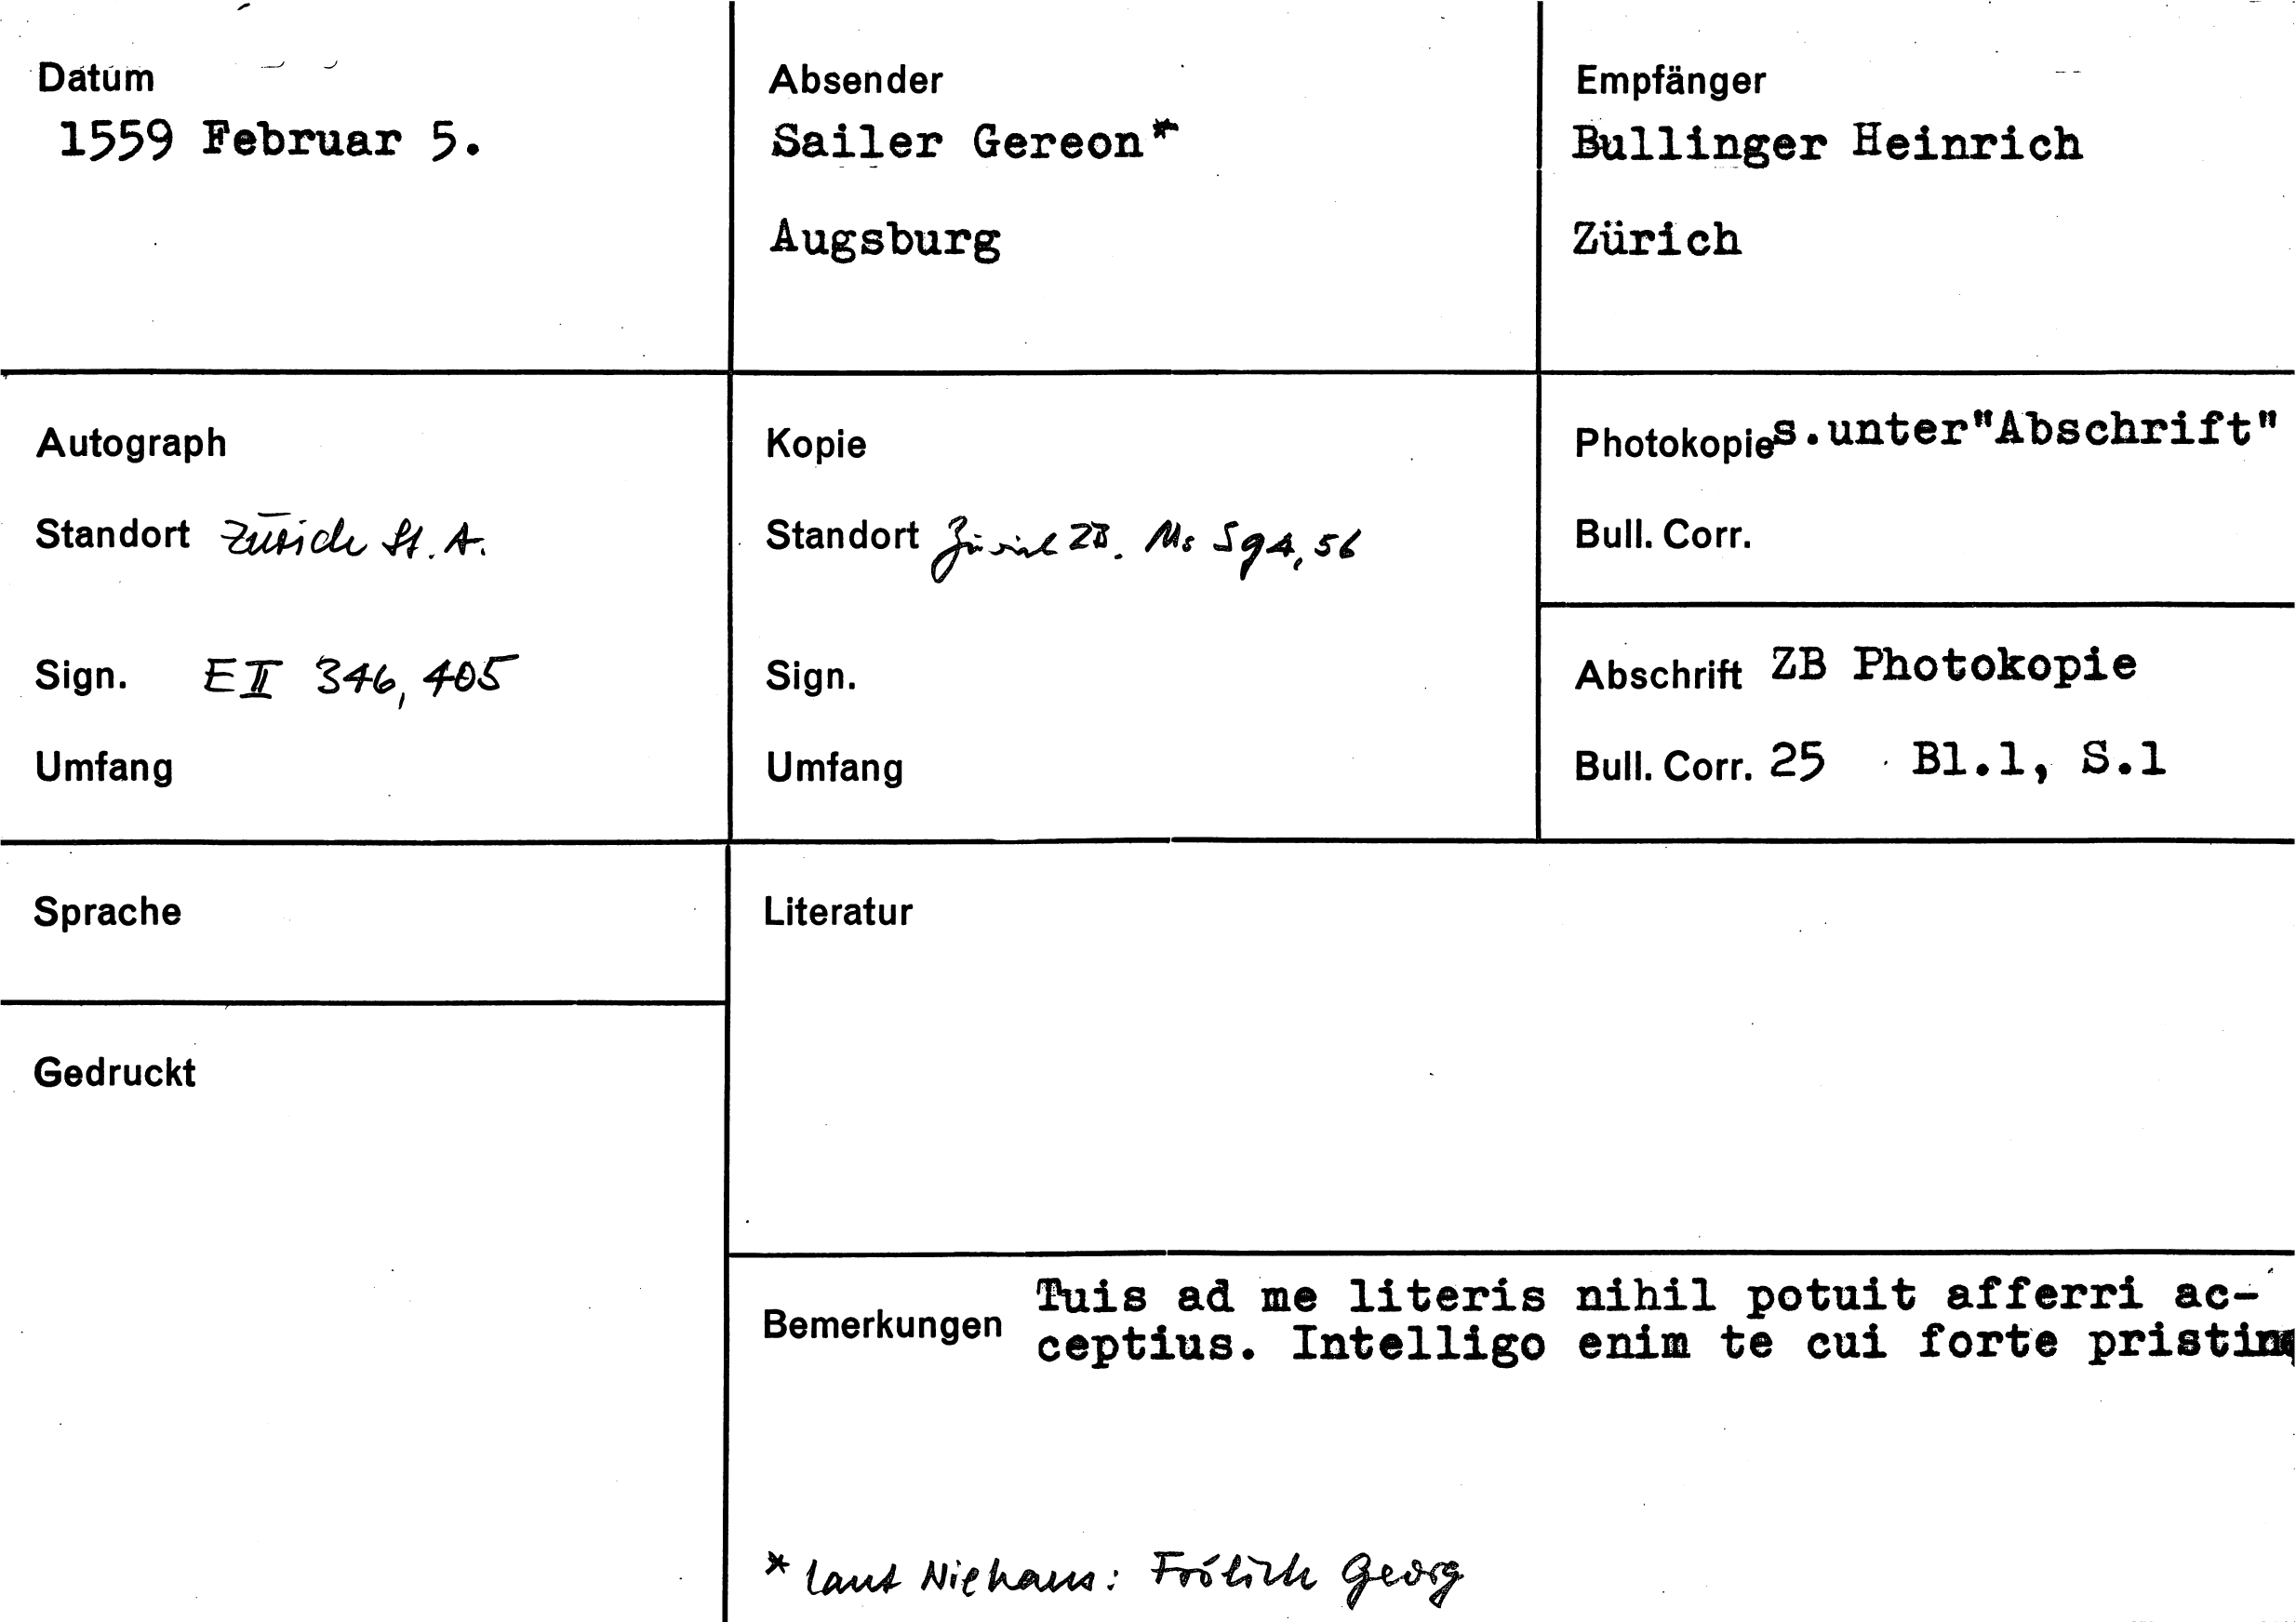 Datum
1559 Februar 5.
Absender
Sailer Gereon*
Augsburg
Empfänger
Bullinger Heinrich
Zürich
Autograph
Standort Zürich St. A.
Sign. E II 346, 405
Umfang
Kopie
Standort Zürich ZB. Ms S 94, 56
Sign.
Umfang
Photokopie s.unter"Abschrift"
Bull. Corr.
Abschrift ZB Photokopie
Bull. Corr. 25 Bl.1, S.1
Sprache
Gedruckt
Literatur
Bemerkungen
Tuis ad me literis nihil potuit afferri ac-
ceptius. Intelligo enim te cui forte
* laut Niehaus: Frölich Georg